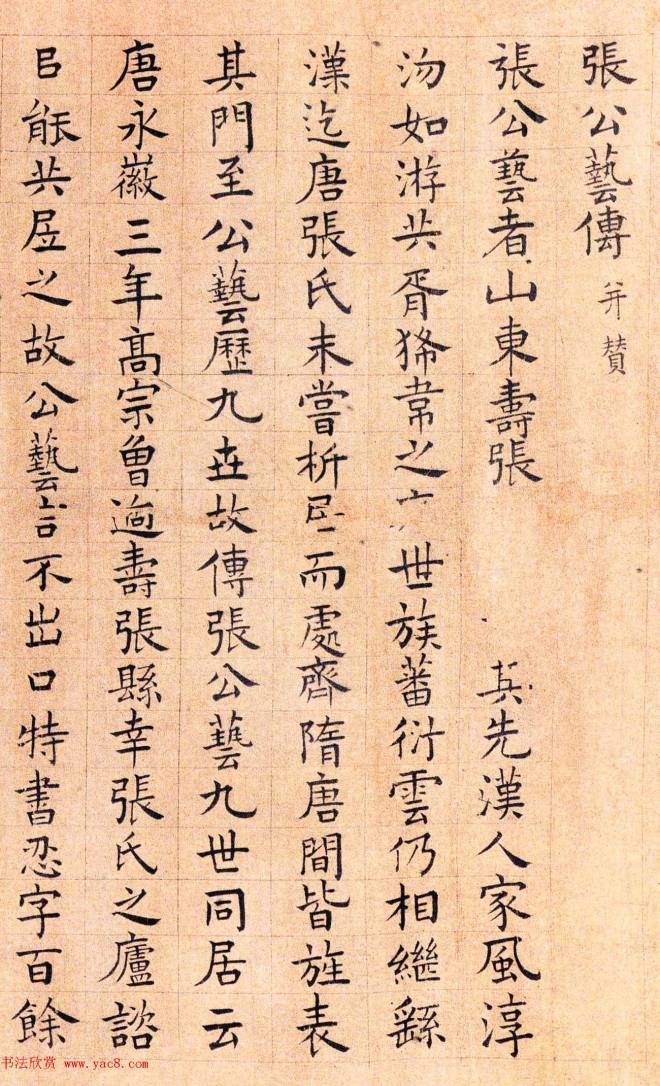 張公藝傳 并贊
張公藝者山東壽張 其先漢人家風淳
汤如游共胥狶韋之 世族蕃衍雲仍相繼繇
漢迄唐張氏未嘗析居而處齊隋唐間皆旌表
其門至公藝歷九世故傳張公藝九世同居云
唐永徽三年高宗曾過壽張縣幸張氏之廬諮
㠯能共居之故公藝言不出口特書忍字百餘
书法欣赏 www.yac8.com